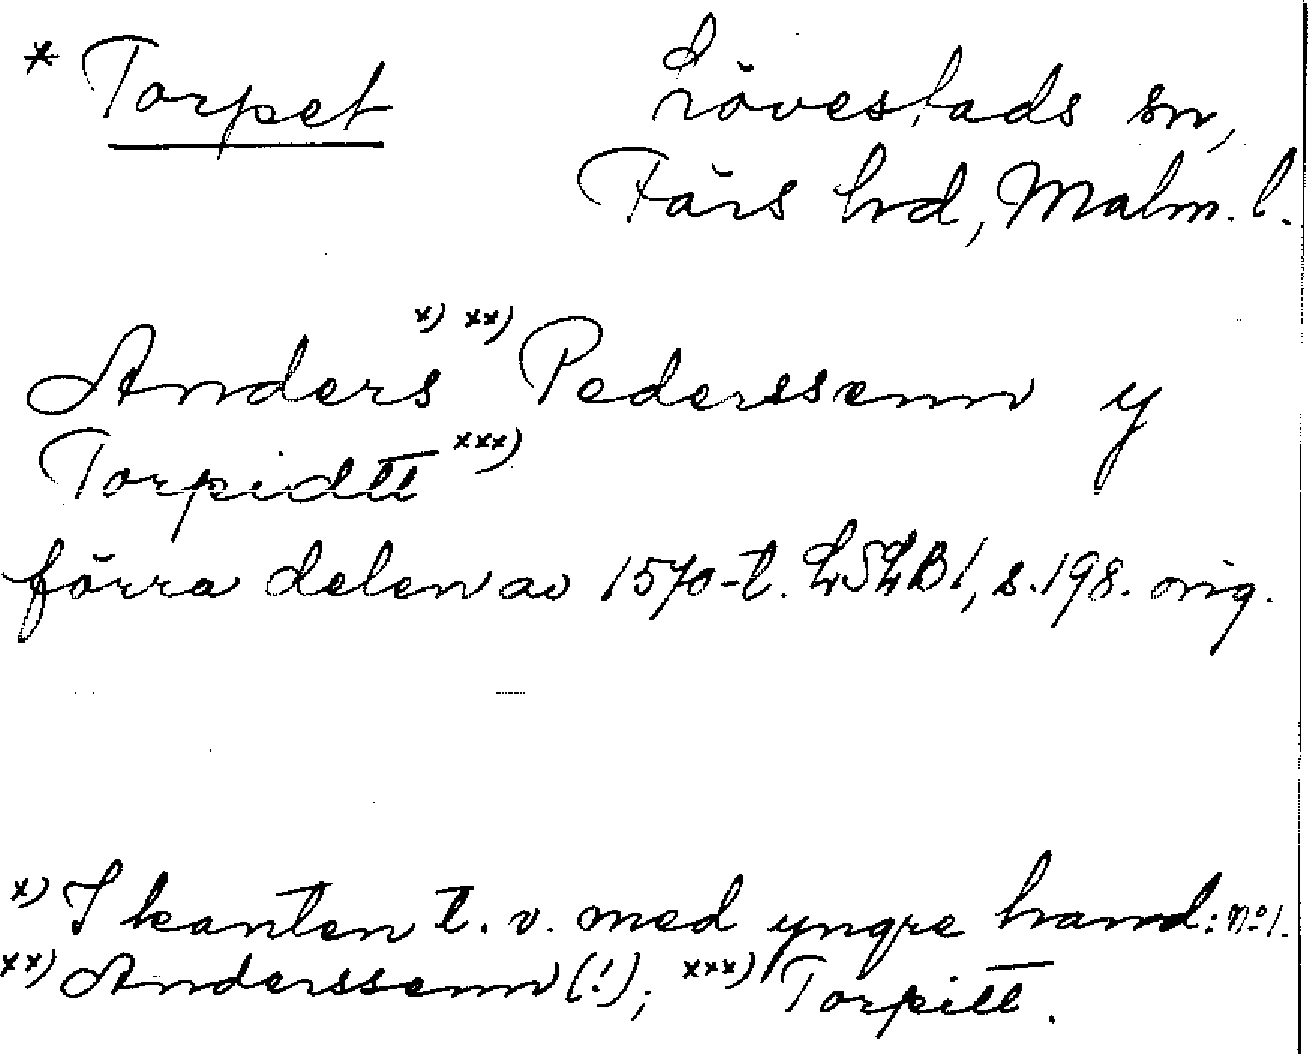 * Torpet Lövestads sn,
Färs hd, Malm. l.
Anders x) xx) Pederssenn y
Torpidtt xxx)
förra delen av 1570-t. LSLB 1, s. 198. orig.
x) I kanten t. v. med yngre hand: no 1.
xx) Anderssenn (!); xxx) Torpitt.